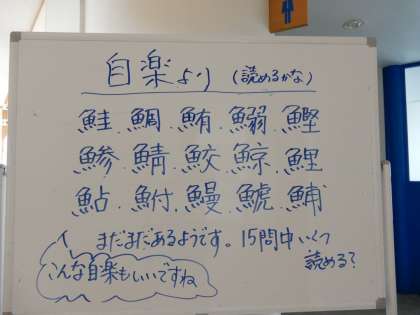 自楽より (読めるかな)
鮭.鯛.鮪.鰯.鰹
鯵.鯖.鮫.鯨.鯉
鮎.鮒.鰻.鯱.鯆
まだまだあるようです。15問中いくつ
読める?
こんな自楽もいいですね